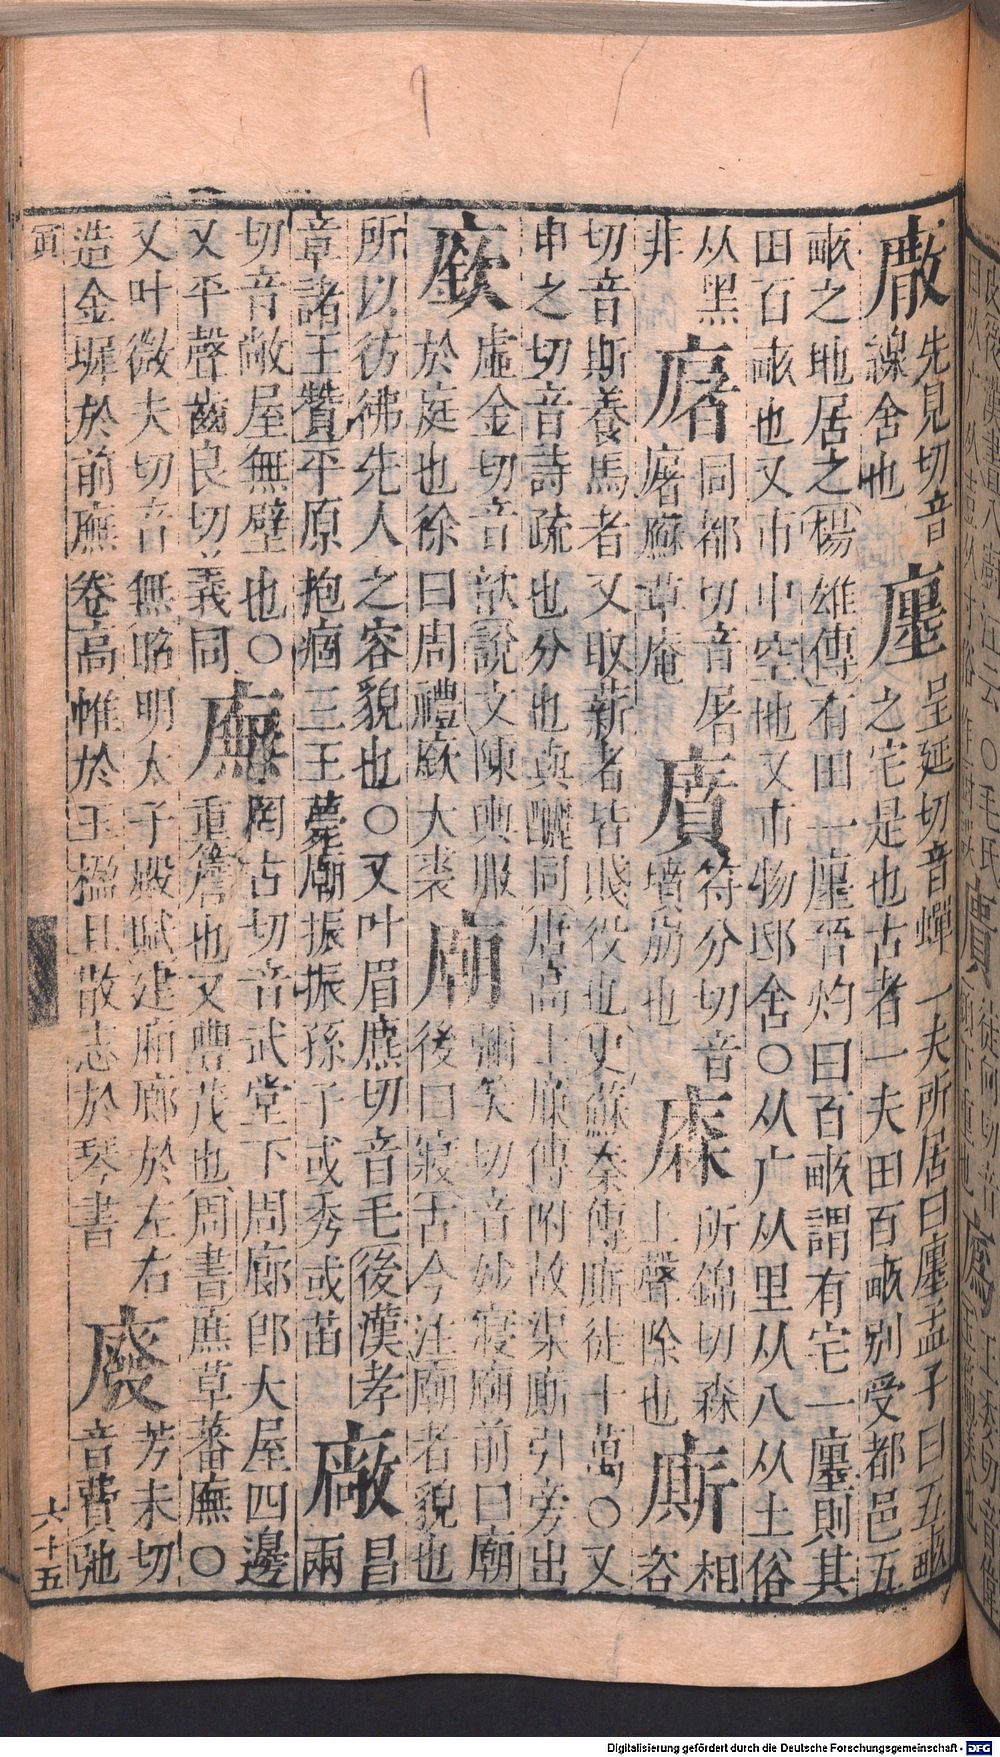 先見切音廛呈延切音蟬一夫所居曰廛孟子曰五畝
線舍也之宅是也古者一夫田百畝別受都邑五
畝之地居之楊雄傳有田一廛晉灼曰百畝謂有宅一廛則其
田百畝也又市中空地又市物邸舍〇从广从里从八从土俗
从黑廜同都切音屠符分切音所錦切森廝相
非廜㢝草庵墳崩也上聲除也咨
切音斯養馬者又取薪者皆賤役也史蘇秦傳廝徒十萬〇又
申之切音詩疏也分也與釃同唐高士廉傳附故渠廝引旁出
廞虛金切音歆說文陳輿服庿彌笑切音妙寢廟前曰廟
於庭也徐曰周禮廞大裘後曰寢古今注廟者貌也
所以彷彿先人之容貌也〇又叶眉麃切音毛後漢孝廠昌
章諸王贊平原抱痼三王薨廟振振孫子或秀或苗兩
切音敞屋無壁也〇廡罔古切音武堂下周廊郎大屋四邊
又平聲齒良切義同重簷也又豐茂也周書庶草蕃廡〇
又叶微夫切音無昭明太子殿賦建廂廊於左右廢芳未切
造金墀於前廡卷高帷於玉楹且散志於琴書音費弛
寅
六十五
Digitalisierung gefördert durch die Deutsche Forschungsgemeinschaft - DFG